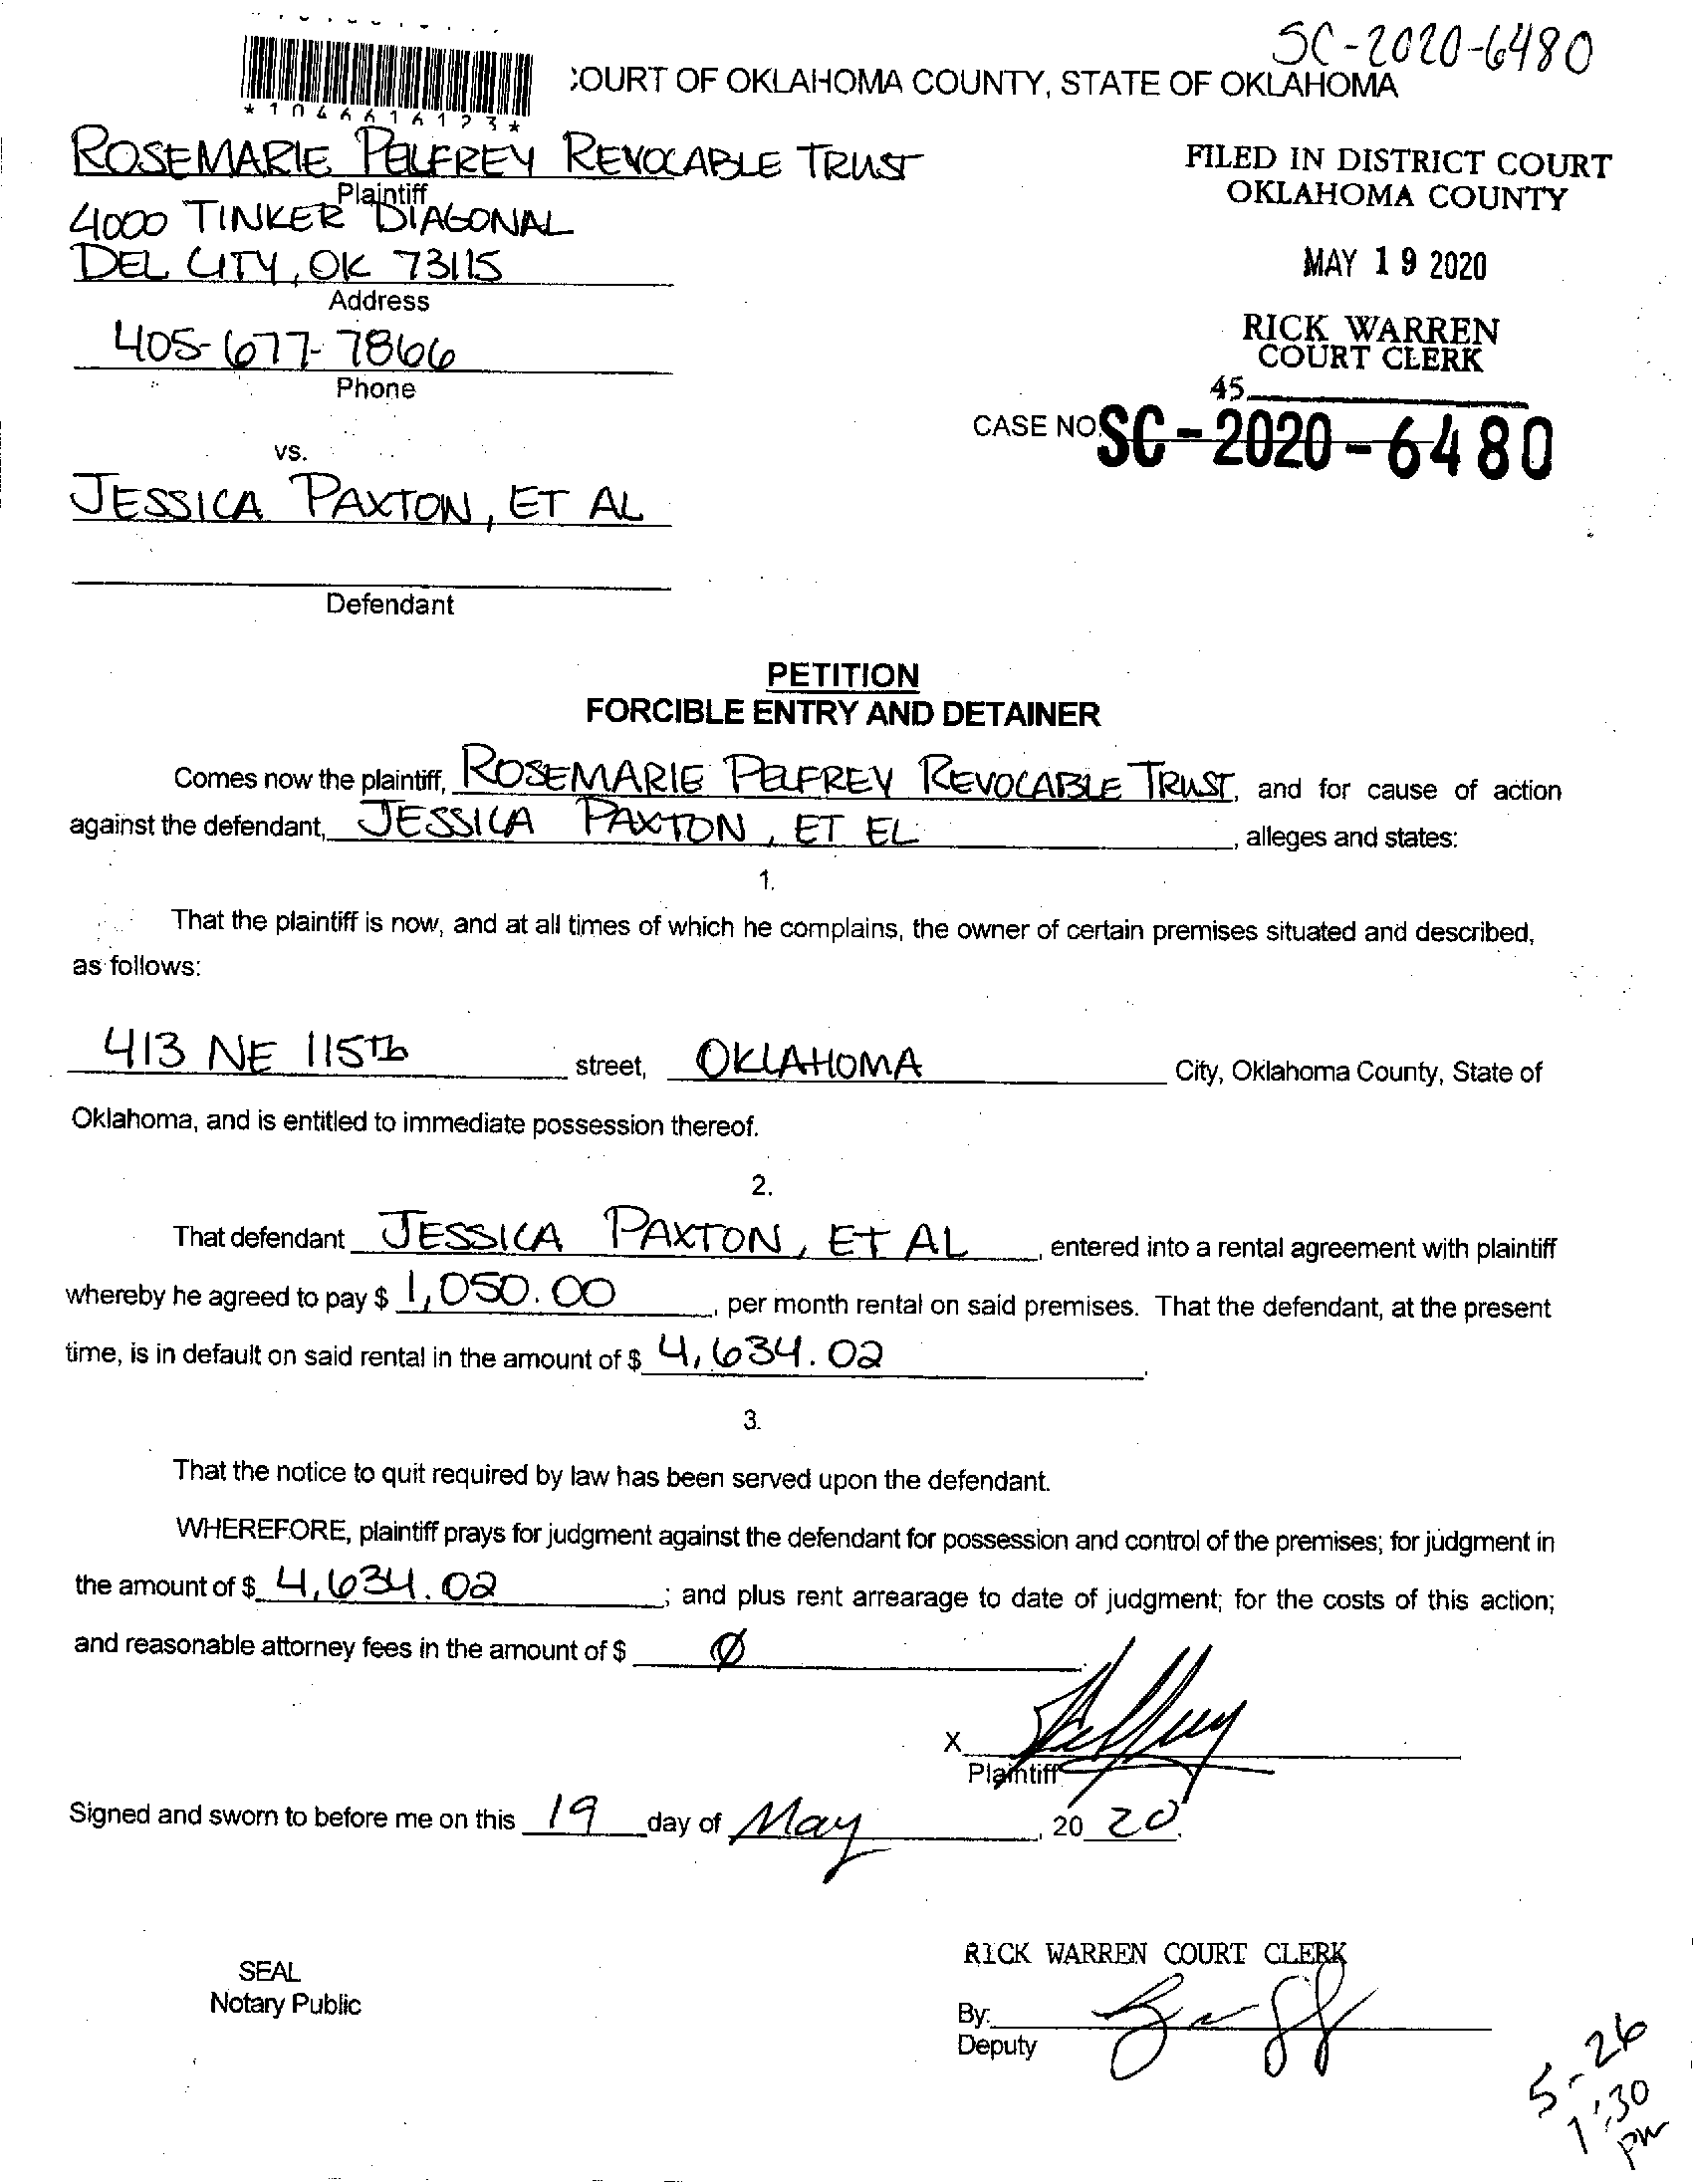 SC-2020-6480
COURT OF OKLAHOMA COUNTY, STATE OF OKLAHOMA
*1046616123*
ROSEMARIE PELFREY REVOCABLE TRUST
Plaintiff
4000 TINKER DIAGONAL
DEL CITY, OK 73115
Address
405-677-7866
Phone
FILED IN DISTRICT COURT
OKLAHOMA COUNTY
MAY 19 2020
RICK WARREN
COURT CLERK
45
CASE NO. SC-2020-6480
vs.
JESSICA PAXTON, ET AL
Defendant
PETITION
FORCIBLE ENTRY AND DETAINER
Comes now the plaintiff, ROSEMARIE PELFREY REVOCABLE TRUST, and for cause of action
against the defendant, JESSICA PAXTON, ET EL, alleges and states:
1.
That the plaintiff is now, and at all times of which he complains, the owner of certain premises situated and described,
as follows:
413 NE 115Th street, OKLAHOMA City, Oklahoma County, State of
Oklahoma, and is entitled to immediate possession thereof.
2.
That defendant JESSICA PAXTON, ET AL, entered into a rental agreement with plaintiff
whereby he agreed to pay $ 1,050.00, per month rental on said premises. That the defendant, at the present
time, is in default on said rental in the amount of $ 4,634.02.
3.
That the notice to quit required by law has been served upon the defendant.
WHEREFORE, plaintiff prays for judgment against the defendant for possession and control of the premises; for judgment in
the amount of $ 4,634.02; and plus rent arrearage to date of judgment; for the costs of this action;
and reasonable attorney fees in the amount of $ Ø
X
Plaintiff
Signed and sworn to before me on this 19 day of May, 20 20.
SEAL
Notary Public
RICK WARREN COURT CLERK
By:
Deputy
5-26
1:30
pm